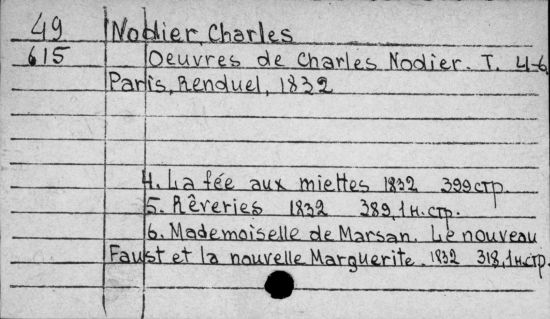 49 Nodier, Charles
615 Oeuvres de Charles Nodier. T. 4-6
Paris, Renduel, 1832
4. La fée aux miettes 1832 399 стр.
5. Rêveries 1832 389, 1 н. стр.
6. Mademoiselle de Marsan. Le nouveau
Faust et la nouvelle Marguerite. 1832 318, 1 н. стр.